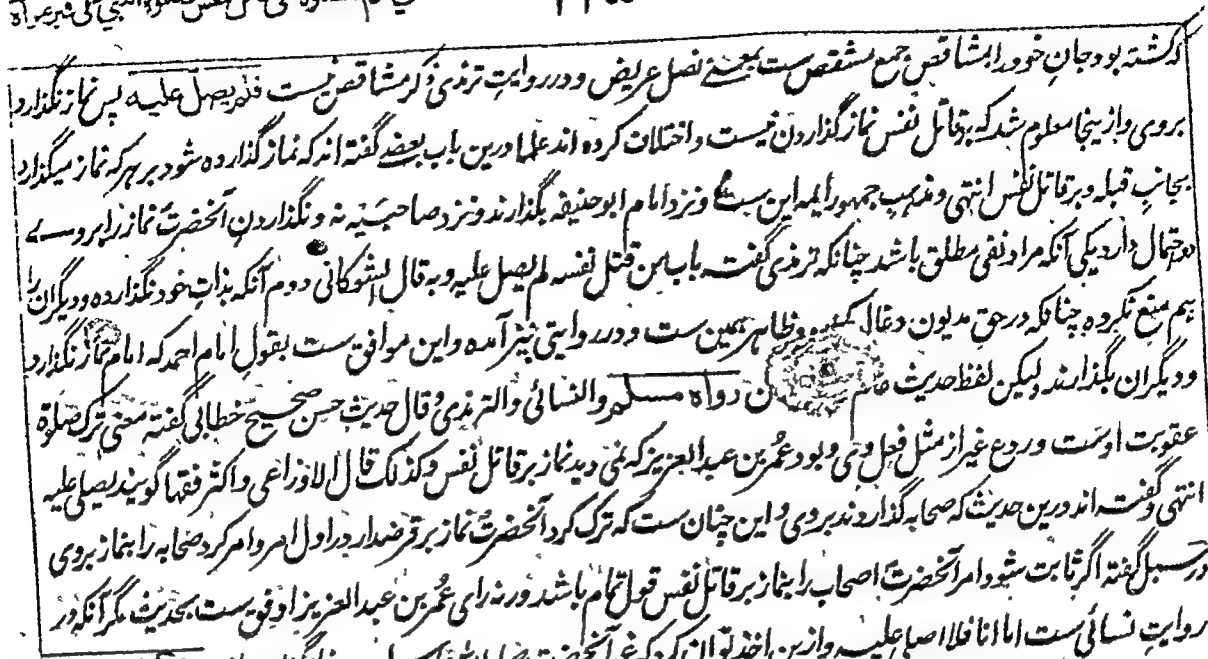 کشته بود جان خود را بمشاقص جمع مشقص ست بمعنے نصل عریض و در روایت ترمذی ذکر مشاقص نیست فلم یصل علیه پس نماز نگذارد
بروی و ازینجا معلوم شد که بر قاتل نفس نماز گذاردن نیست و اختلاف کرده اند علما درین باب بعضے گفته اند که نماز گذارده شود بر هر که نماز میگذارد
بجانب قبله و بر قاتل نفس انتهی و مذهب جمهور ایمه این ست و نزد امام ابو حنیفه بگذارند و نزد صاحبینه نه و نگذاردن آنحضرت نماز را بروے
دو احتمال دارد یکی آنکه مراد نفی مطلق باشد چنانکه ترمذی گفت باب من قتل نفسه لم یصل علیه و به قال الشوکانی دوم آنکه بذات خود نگذارده و دیگران را
هم منع نکرده چنانکه در حق مدیون و غال و ظاهر همین ست و در روایتی نیز آمده و این موافق ست بقول امام احمد که امام نماز نگذارد
و دیگران بگذارند لیکن لفظ حدیث رواه مسلم والنسائی والترمذی و قال حدیث حسن صحیح خطابی گفته معنی ترک صلوة
عقوبت اوست و ردع غیر از مثل فعل وی و بود عمر بن عبد العزیز که نمی دید نماز بر قاتل نفس و کذلک قال الاوزاعی و اکثر فقها گویند یصلی علیه
انتهی و گفته اند درین حدیث که صحابه گذاردند بروی و این چنان ست که ترک کرد آنحضرت نماز بر قرضدار در اول امر و امر کرد صحابه را بنماز بروی
در سبل گفته اگر ثابت شود امر آنحضرت اصحاب را بنماز بر قاتل نفس قول تمام باشد ورنه رای عمر بن عبد العزیز اوفق ست بحدیث مگر آنکه در
روایت نسائی ست اما انا فلا اصلی علیه و ازین اخذ توان کرد که غیر آنحضرت